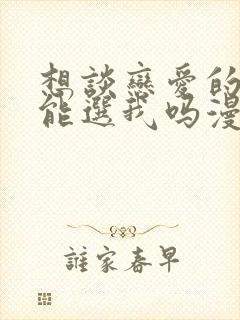 想談戀愛的
能選我吗漫
誰家春早